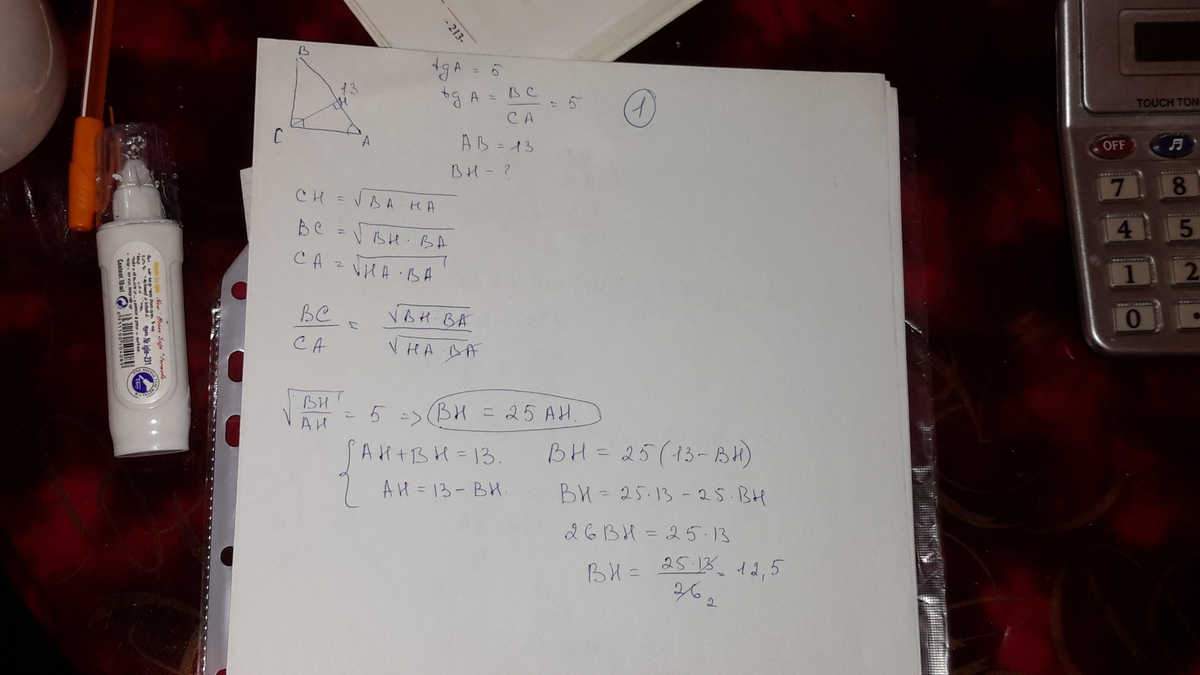 -213-
B
13
H
C
A
tg A = 5
tg A = BC/CA = 5
1
AB = 13
BH - ?
CH = √BA · HA
BC = √BH · BA
CA = √HA · BA
BC/CA = √BH · BA/√HA · BA
√BH/AH = 5 => BH = 25 AH.
{ AH + BH = 13.
AH = 13 - BH.
BH = 25 (13 - BH)
BH = 25·13 - 25·BH
26 BH = 25·13
BH = 25·13/26 2 = 12,5
TOUCH TON
OFF
7 8
4 5
1 2
0 ·
Content 10 ml